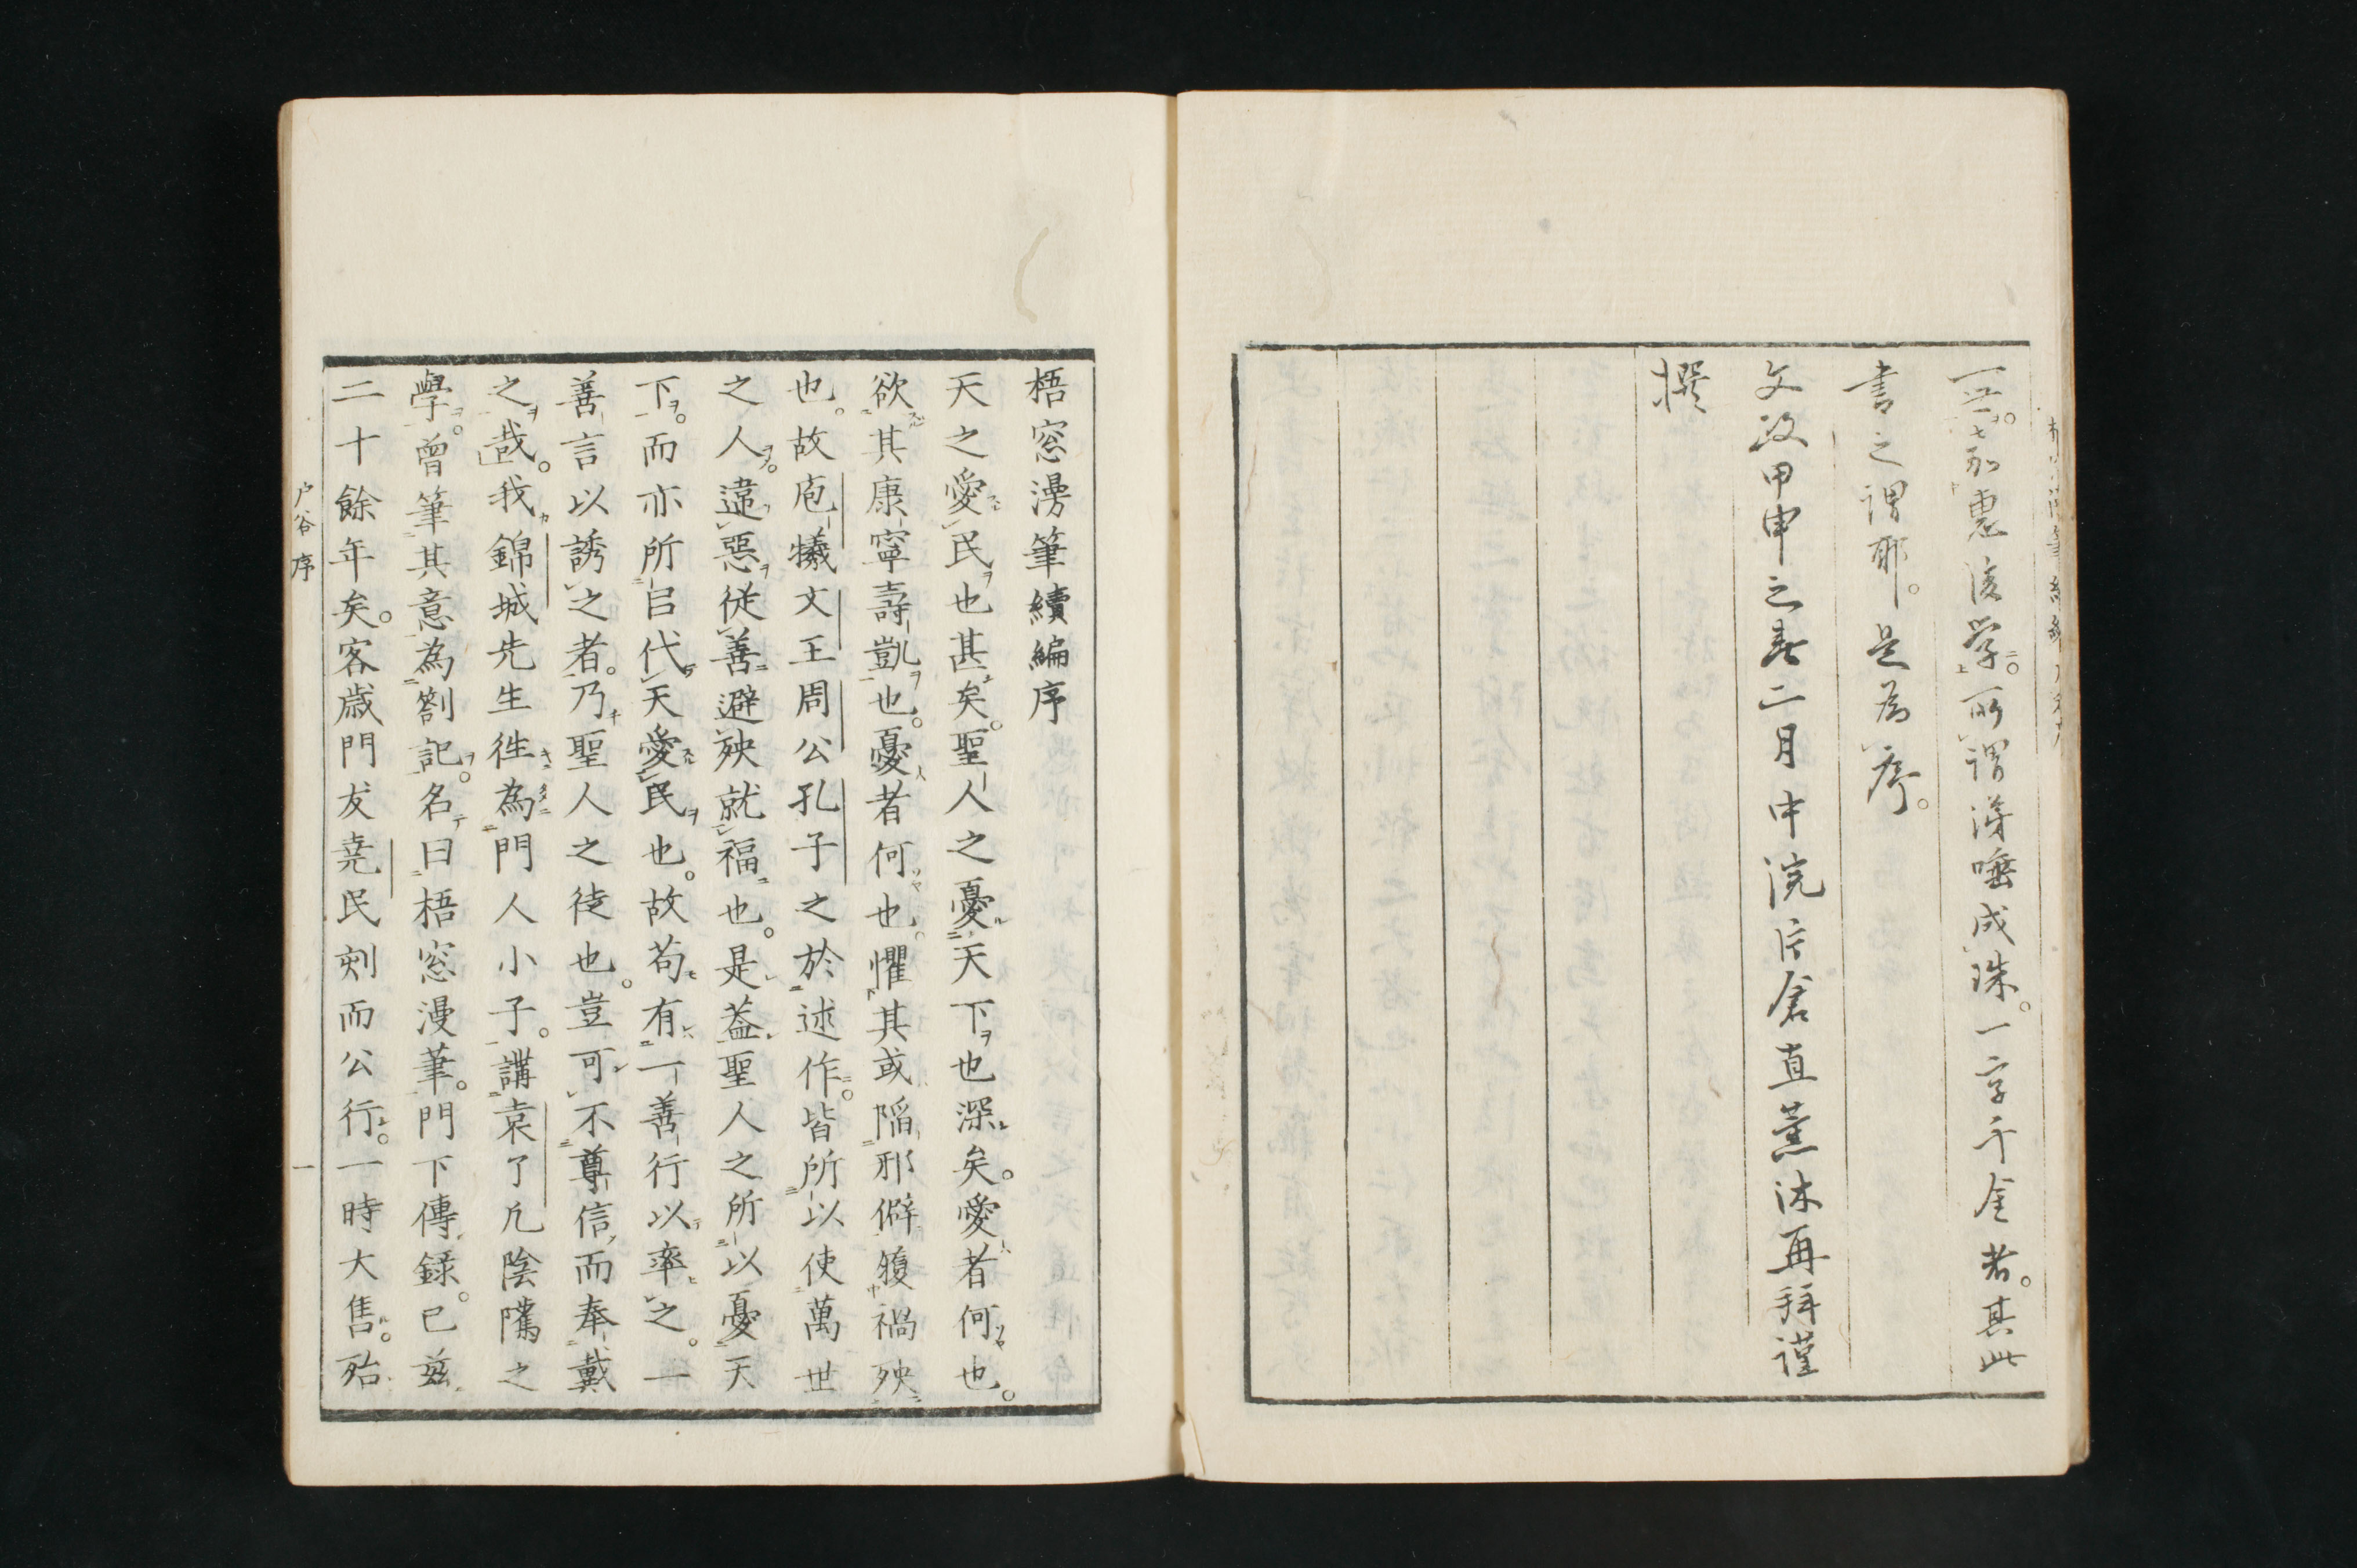 以加惠後学所謂涕唾成珠一字千金者其此
書之謂耶是為序
文政甲申之春二月中浣片倉直薫沐再拜謹
撰
梧窓漫筆續編序
天之愛民也甚矣聖人之憂天下也深矣愛者何也
欲其康寧壽凱也憂者何也懼其或陷邪僻獲禍殃
也故庖犧文王周公孔子之於述作皆所以使萬世
之人違惡從善避殃就福也是葢聖人之所以憂天
下而亦所㠯代天愛民也故苟有一善行以率之一
善言以誘之者乃聖人之徒也豈可不尊信而奉戴
之哉我錦城先生徃為門人小子講袁了凢陰隲之
學曾筆其意為劄記名曰梧窓漫筆門下傳錄已茲
二十餘年矣客歳門友堯民刻而公行一時大售殆
戸谷序
一